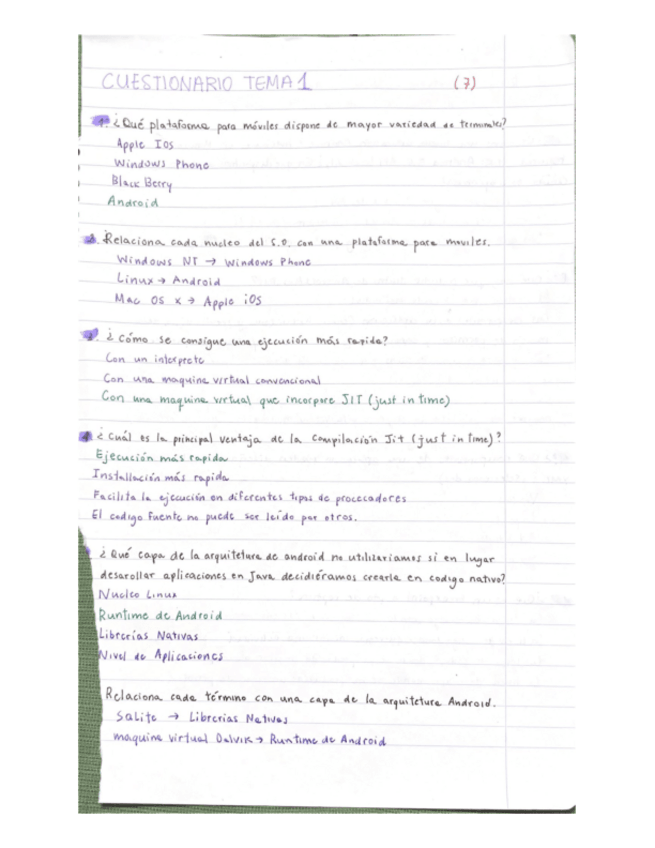 CUESTIONARIO TEMA 1 (7)
1. ¿Qué plataforma para móviles dispone de mayor variedad de terminales?
Apple IOs
Windows Phone
Black Berry
Android
2. Relaciona cada nucleo del S.O. con una plataforma para moviles.
Windows NT → Windows Phone
Linux → Android
Mac OS X → Apple iOS
3. ¿Cómo se consigue una ejecución más rapida?
Con un interprete
Con una maquina virtual convencional
Con una maquina virtual que incorpore JIT (just in time)
4. ¿Cuál es la principal ventaja de la compilación Jit (just in time)?
Ejecución más rapida
Installación más rapida
Facilita la ejecución en diferentes tipos de procecadores
El codigo fuente no puede ser leido por otros.
¿Qué capa de la arquitetura de android no utilizariamos si en lugar
desarollar aplicaciones en Java decidiéramos crearla en codigo nativo?
Nucleo Linux
Runtime de Android
Librerías Nativas
Nivel de Aplicaciones
Relaciona cada término con una capa de la arquitetura Android.
SQLite → Librerias Nativas
maquina virtual Dalvik → Runtime de Android